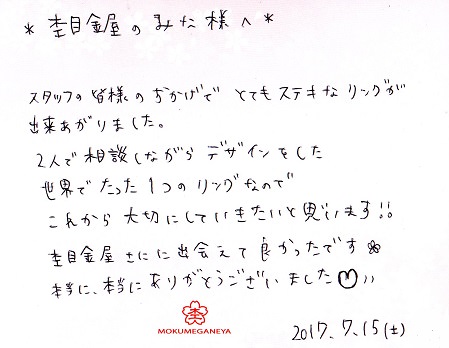 * 杢目金屋のみな様へ *
スタッフの皆様のおかげで とてもステキなリングが
出来あがりました。
2人で相談しながらデザインをした
世界でたった1つのリングなので
これから大切にしていきたいと思います!!
杢目金屋さんに出会えて良かったです
本当に、本当にありがとうございました♡,,
杢
MOKUMEGANEYA
2017.7.15(土)